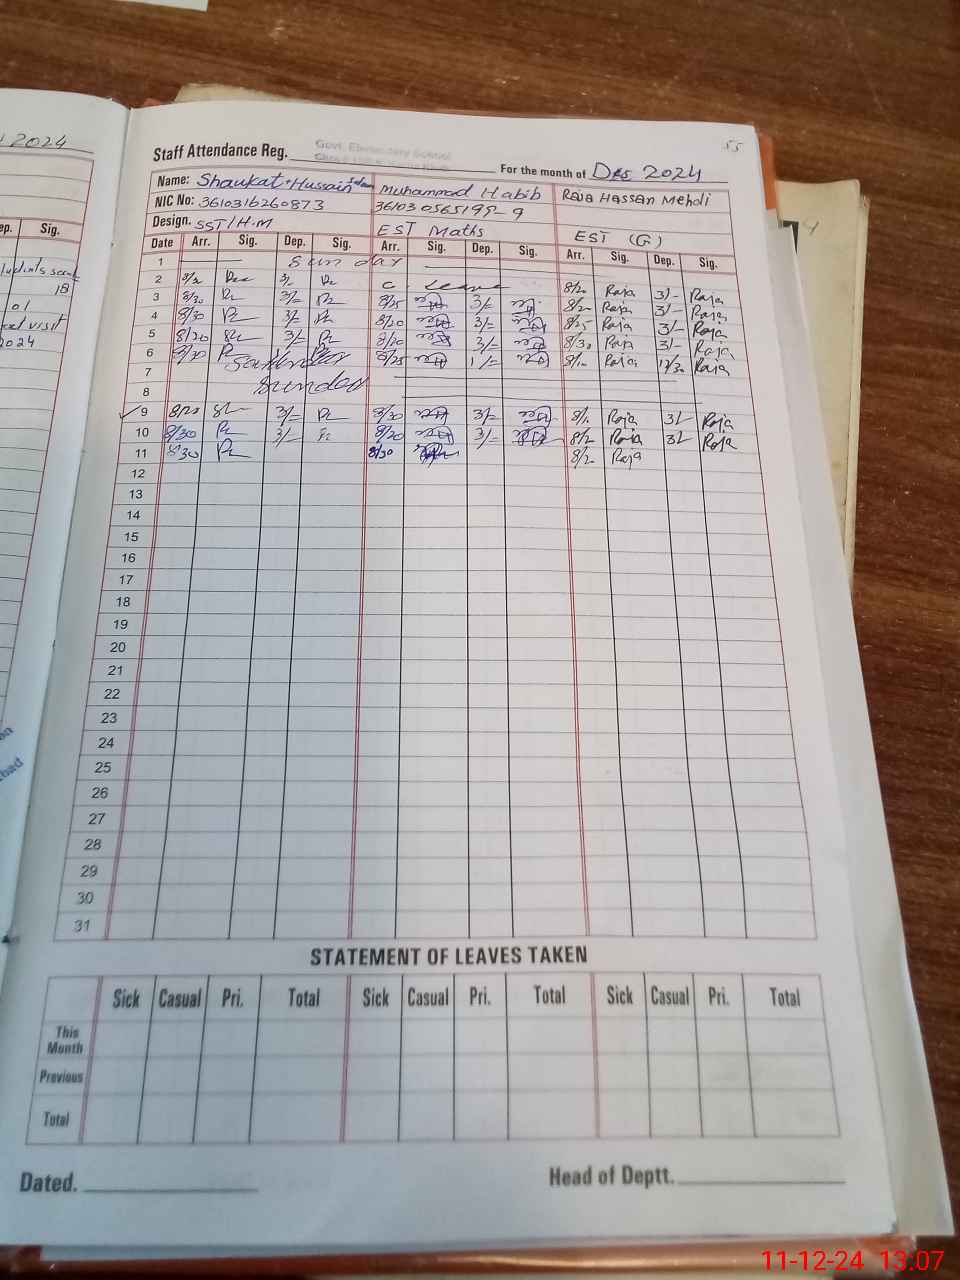 2024
Sig.
18
visit
2024
55
Govt. Elementary School
Staff Attendance Reg.
For the month of Des 2024
Name: Shaukat Hussain Muhammad Habib Raja Hassan Mehdi
NIC No: 3610316260873 36103 0565195-9
Design. SST/H.M EST Maths EST (G)
Date Arr. Sig. Dep. Sig. Arr. Sig. Dep. Sig. Arr. Sig. Dep. Sig.
1 Sunday
2 C Leave 8/20 Raja 3/- Raja
3 8/30 3/= 8/25 3/= 8/20 Raja 3/- Raja
4 8/30 3/= 8/20 3/= 8/25 Raja 3/- Raja
5 8/20 3/- 8/20 3/= 8/30 Raja 3/- Raja
6 8/30 8/25 1/= Raja 12/30 Raja
7 Sunday
8
9 8/20 3/= 8/30 3/= Raja 3/- Raja
10 8/30 3/- 8/20 3/= 8/2 Raja 3/- Raja
11 8/30 8/30 8/2 Raja
12
13
14
15
16
17
18
19
20
21
22
23
24
25
26
27
28
29
30
31
STATEMENT OF LEAVES TAKEN
Sick Casual Pri. Total Sick Casual Pri. Total Sick Casual Pri. Total
This Month
Previous
Total
Dated.
Head of Deptt.
11-12-24 13:07